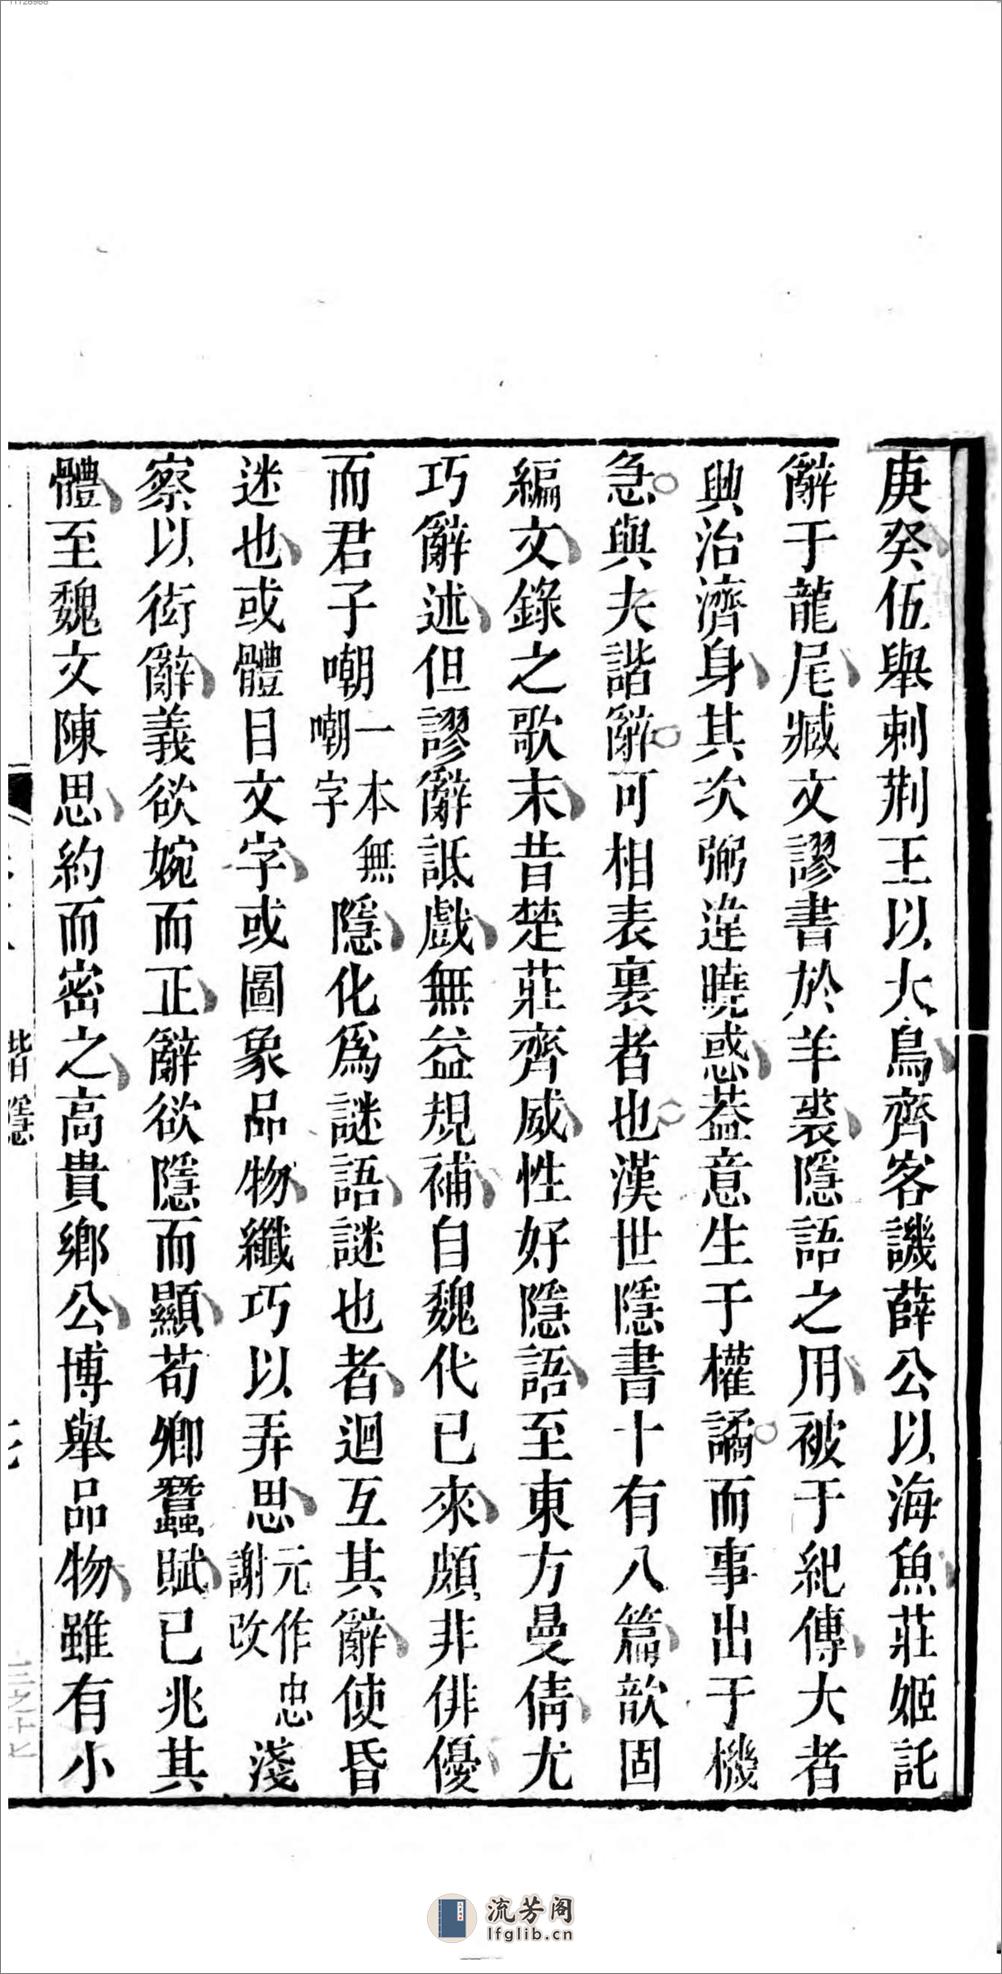 庚癸伍舉刺荆王以大鳥齊客譏薛公以海魚莊姬託
辭于龍尾臧文謬書於羊裘隱語之用被于紀傳大者
興治濟身其次弼違曉惑葢意生于權譎而事出于機
急與夫諧辭可相表裏者也漢世隱書十有八篇歆固
編文錄之歌末昔楚莊齊威性好隱語至東方曼倩尤
巧辭述但謬辭詆戲無益規補自魏代已來頗非俳優
而君子嘲一本無嘲字隱化爲謎語謎也者迴互其辭使昏
迷也或體目文字或圖象品物纖巧以弄思元作忠謝改淺
察以衒辭義欲婉而正辭欲隱而顯荀卿蠶賦已兆其
體至魏文陳思約而密之高貴鄉公博舉品物雖有小
諧隱
七
三之十七
11128988
流芳阁
lfglib.cn